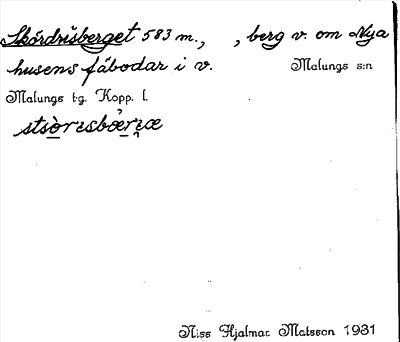 Skördrisberget 583 m., , berg v. om Nya
husens fäbodar i v. Malungs s:n
Malungs tg. Kopp. l.
stsòrɪsbœ̀rɪæ
Niss Hjalmar Matsson 1931